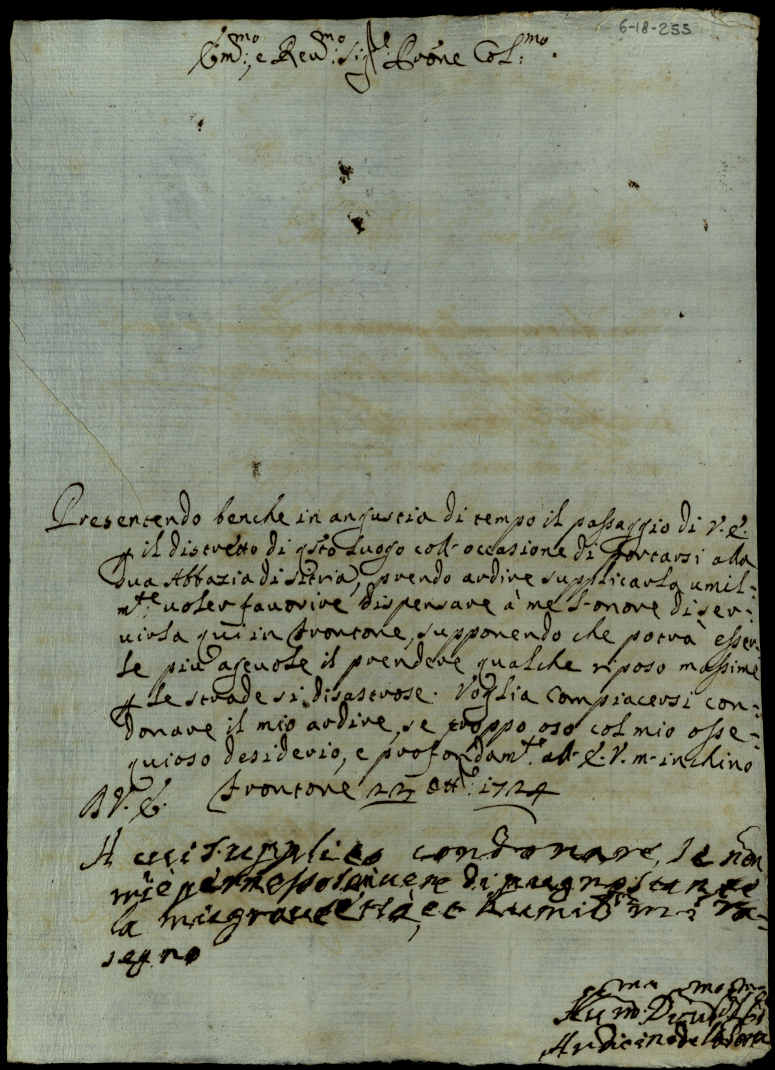 6-18-255
Em.mo, e Reu.mo Sig.r Prone Col.mo
Presentendo benche in angustia di tempo il passaggio di V. E.
p il distretto di qsto luogo coll'occasione di portarsi alla
sua Abbazia di Sitria, prendo ardire supplicarla umil-
m.te uoler fauorire dispensare à me l'onore di ser-
uirla qui in Frontone, supponendo che potrà esser-
le più ageuole il prendere qualche riposo massime
p le strade si disastrose. Voglia compiacersi con-
donare il mio ardire, se troppo oso col mio osse-
quioso desiderio, e profondam.te all'E. V. m'inchino
D V. E. Frontone 22 Ott.e 1724
A cui supplico condonare, se non
mi è permesso scriuere di pugno stante
la mia graue età, et humil.te mi ra-
segno
Hum.mo Diu.mo
Ardicino della Porta